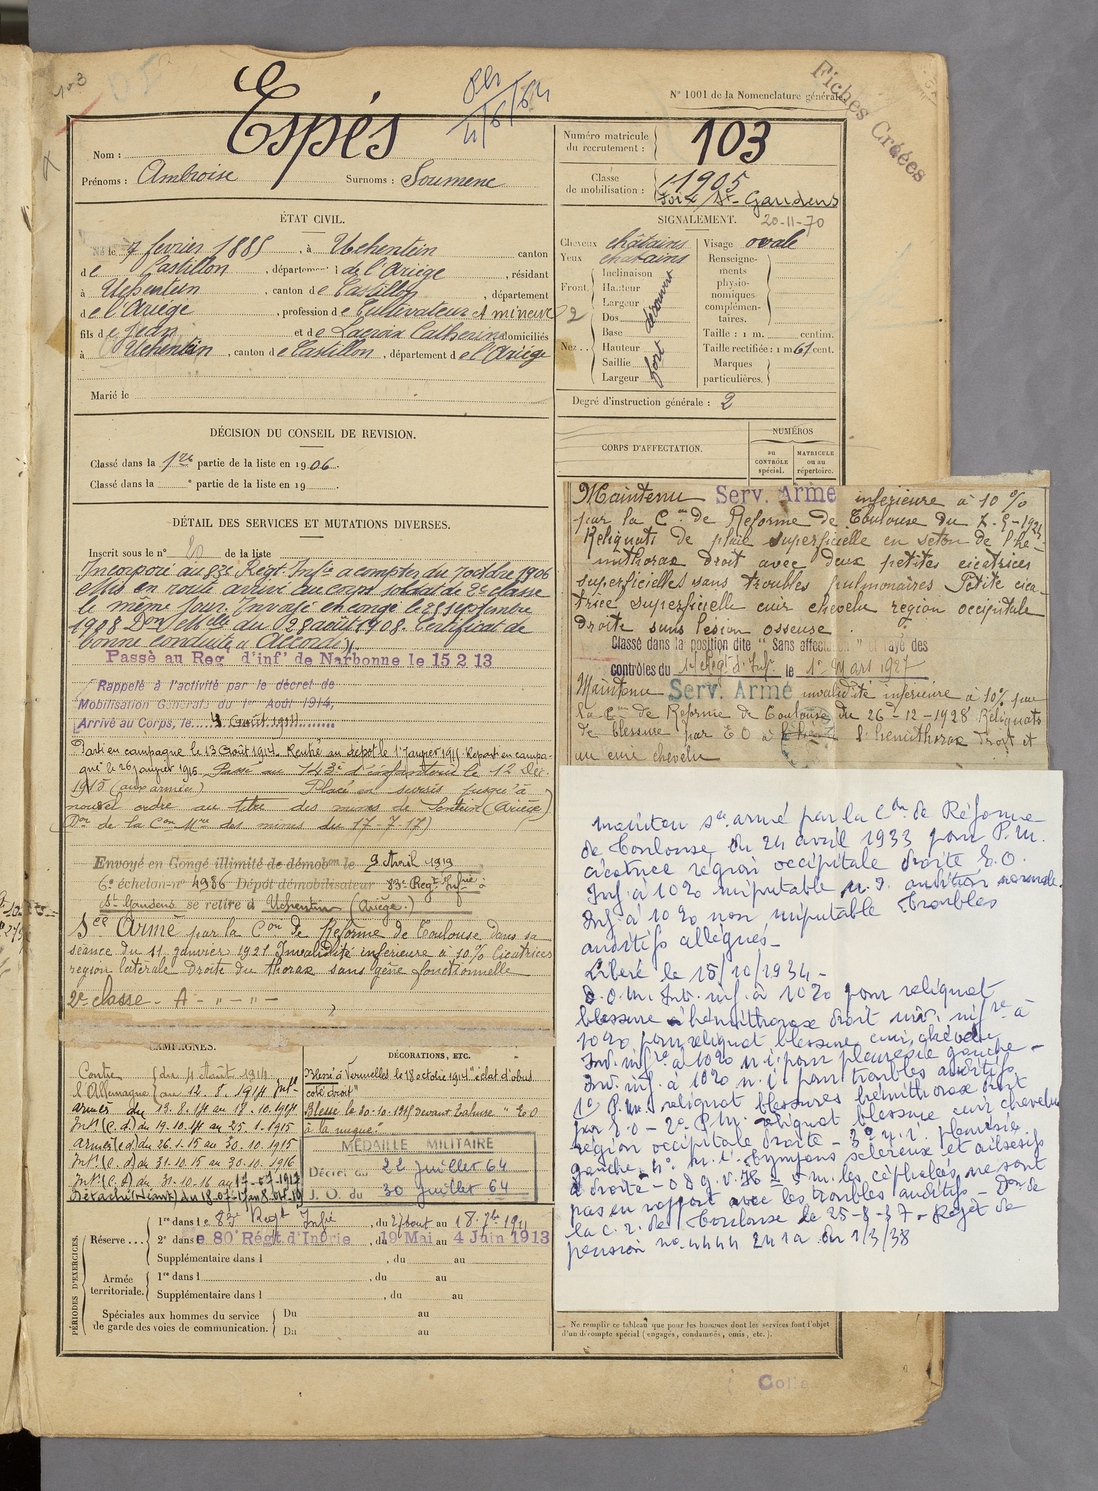 N° 1001 de la Nomenclature générale.
Fiches Créées
Nom : Espés
Prénoms : Ambroise Surnoms : Soumene
Numéro matricule du recrutement : 103
Classe de mobilisation : 1905
St-Gaudens
20-11-70
ÉTAT CIVIL.
Né le 7 fevrier 1885, à Uchentein canton
de Castillon, département de l'Ariège, résidant
à Uchentein, canton de Castillon, département
de l'Ariège, profession de Cultivateur et mineur
fils de Jean et de Lacroix Catherine domiciliés
à Uchentein, canton de Castillon, département de l'Ariège
Marié le
SIGNALEMENT.
Cheveux châtains Visage ovale
Yeux châtains Renseigne-
ments
physio-
nomiques
complémen-
taires.
Front. Inclinaison
Hauteur
Largeur découvert
Nez. Dos
Base
Hauteur
Saillie
Largeur fort
Taille : 1 m. centim.
Taille rectifiée : 1 m 67 cent.
Marques
particulières.
Degré d'instruction générale : 2
DÉCISION DU CONSEIL DE REVISION.
Classé dans la 1re partie de la liste en 1906.
Classé dans la e partie de la liste en 19
CORPS D'AFFECTATION.
NUMÉROS
au CONTRÔLE spécial.
MATRICULE ou au répertoire.
DÉTAIL DES SERVICES ET MUTATIONS DIVERSES.
Inscrit sous le n° 20 de la liste
Incorporé au 83e Régt. Infie à compter du 7 octobre 1906
Mis en route arrivé au corps soldat de 2e classe
le même jour. Envoyé en congé le 25 septembre
1908 Don Mtelle du 28 août 1908. Certificat de
bonne conduite "Accordé"
Passé au Reg. d'inf. de Narbonne le 15 2 13
Rappelé à l'activité par le décret de
Mobilisation Générale du 1er Août 1914,
Arrivé au Corps, le 4 Août 1914
Parti en campagne le 13 Août 1914. Rentré au dépôt le 1 Janvier 1915. Reparti en campa-
gne le 26 janvier 1915. Passé au 143e d'infanterie le 12 Déc.
1915 (aux armées) Placé en sursis jusqu'à
nouvel ordre au titre des mines de Sentein (Ariège)
Don de la Con Mre des mines du 17-7-17)
Envoyé en Congé illimité de démobon le 9 Avril 1919
6e échelon n° 4986 Dépôt démobilisateur 83e Regt Infie à
St Gaudens se retire à Uchentein (Ariège)
Sce Armé par la Con de Réforme de Toulouse dans sa
séance du 11 janvier 1921 Invalidité inférieure à 10% Cicatrices
region latérale Droite du thorax sans gêne fonctionnelle
2e classe - A - " - " -
Maintenu Serv. Armé inferieure à 10 %
par la Con de Reforme de Toulouse du
Reliquats de plaie superficielle en seton de l'hé-
mithorax droit avec deux petites cicatrices
superficielles sans troubles pulmonaires Petite cica-
trice superficielle cuir chevelu region occipitale
droite sans lésion osseuse
Classé dans la position dite "Sans affectation" et rayé des
contrôles du Regt d'Infie le 1er Mars 1927
Maintenu Serv. Armé invalidité inferieure à 10% par
la Con de Reforme de Toulouse du 26-12-1928 Reliquats
de blessure par EO à l'hémithorax droit et
au cuir chevelu
Maintenu sce armé par la Con de Réforme
de Toulouse du 24 avril 1933 pour P.M.
cicatrice région occipitale droite E.O.
Inf. à 10% imputable N.I. audition normale
Inf. à 10% non imputable troubles
auditifs allégués-
Libéré le 15/10/1934-
D.O.M. Inv. inf. à 10% pour reliquat
blessure hémithorax droit inv. infre à
10% pour reliquat blessure cuir chevelu
Inv. infre à 10% n.i. pour pleurésie gauche-
Inv. inf. à 10% n.i. pour troubles auditifs
1° P.M. reliquat blessures hémithorax droit
par E.O - 2° P.M. reliquat blessure cuir chevelu
région occipitale droite - 3° N.I. pleurésie
gauche 4° n.i. tympans scléreux et
à droite - les céphalées ne sont
pas en rapport avec les troubles auditifs - Don de
la C.R. de Toulouse le 25-8-37 - Rejet de
pension no 4444 2412 du 1/3/38
CAMPAGNES.
Contre du 4 Août 1914
l'Allemagne au 12.8.1914 Intr
armées du 13.8.14 au 18.10.1914
Intr (C.d) du 19.10.14 au 25.1.1915
Armées (ed) du 26.1.15 au 30.10.1915
Intr (C.d) du 31.10.15 au 30.10.1916
Intr (C.d) du 31.10.16 au 17-07-1917
Détaché (Mines) du 18.07.17 au 8.04.19
DÉCORATIONS, ETC.
Blessé à Vermelles le 18 octobre 1914 "éclat d'obus
coté droit"
Blessé le 30-10-1915 devant Tahure "E O
à la nuque"
MÉDAILLE MILITAIRE
Décret du 22 juillet 64
J. O. du 30 juillet 64
PÉRIODES D'EXERCICES.
Réserve... 1re dans le 83e Regt Infie, du 27 Aout au 18 7bre 1911
2e dans le 80e Régt. d'Infrie, du 19 Mai au 4 Juin 1913
Supplémentaire dans l, du au
Armée territoriale. 1re dans l, du au
Supplémentaire dans l, du au
Spéciales aux hommes du service Du au
de garde des voies de communication. Du au
Ne remplir ce tableau que pour les hommes dont les services font l'objet
d'un décompte spécial (engagés, condamnés, omis, etc.).